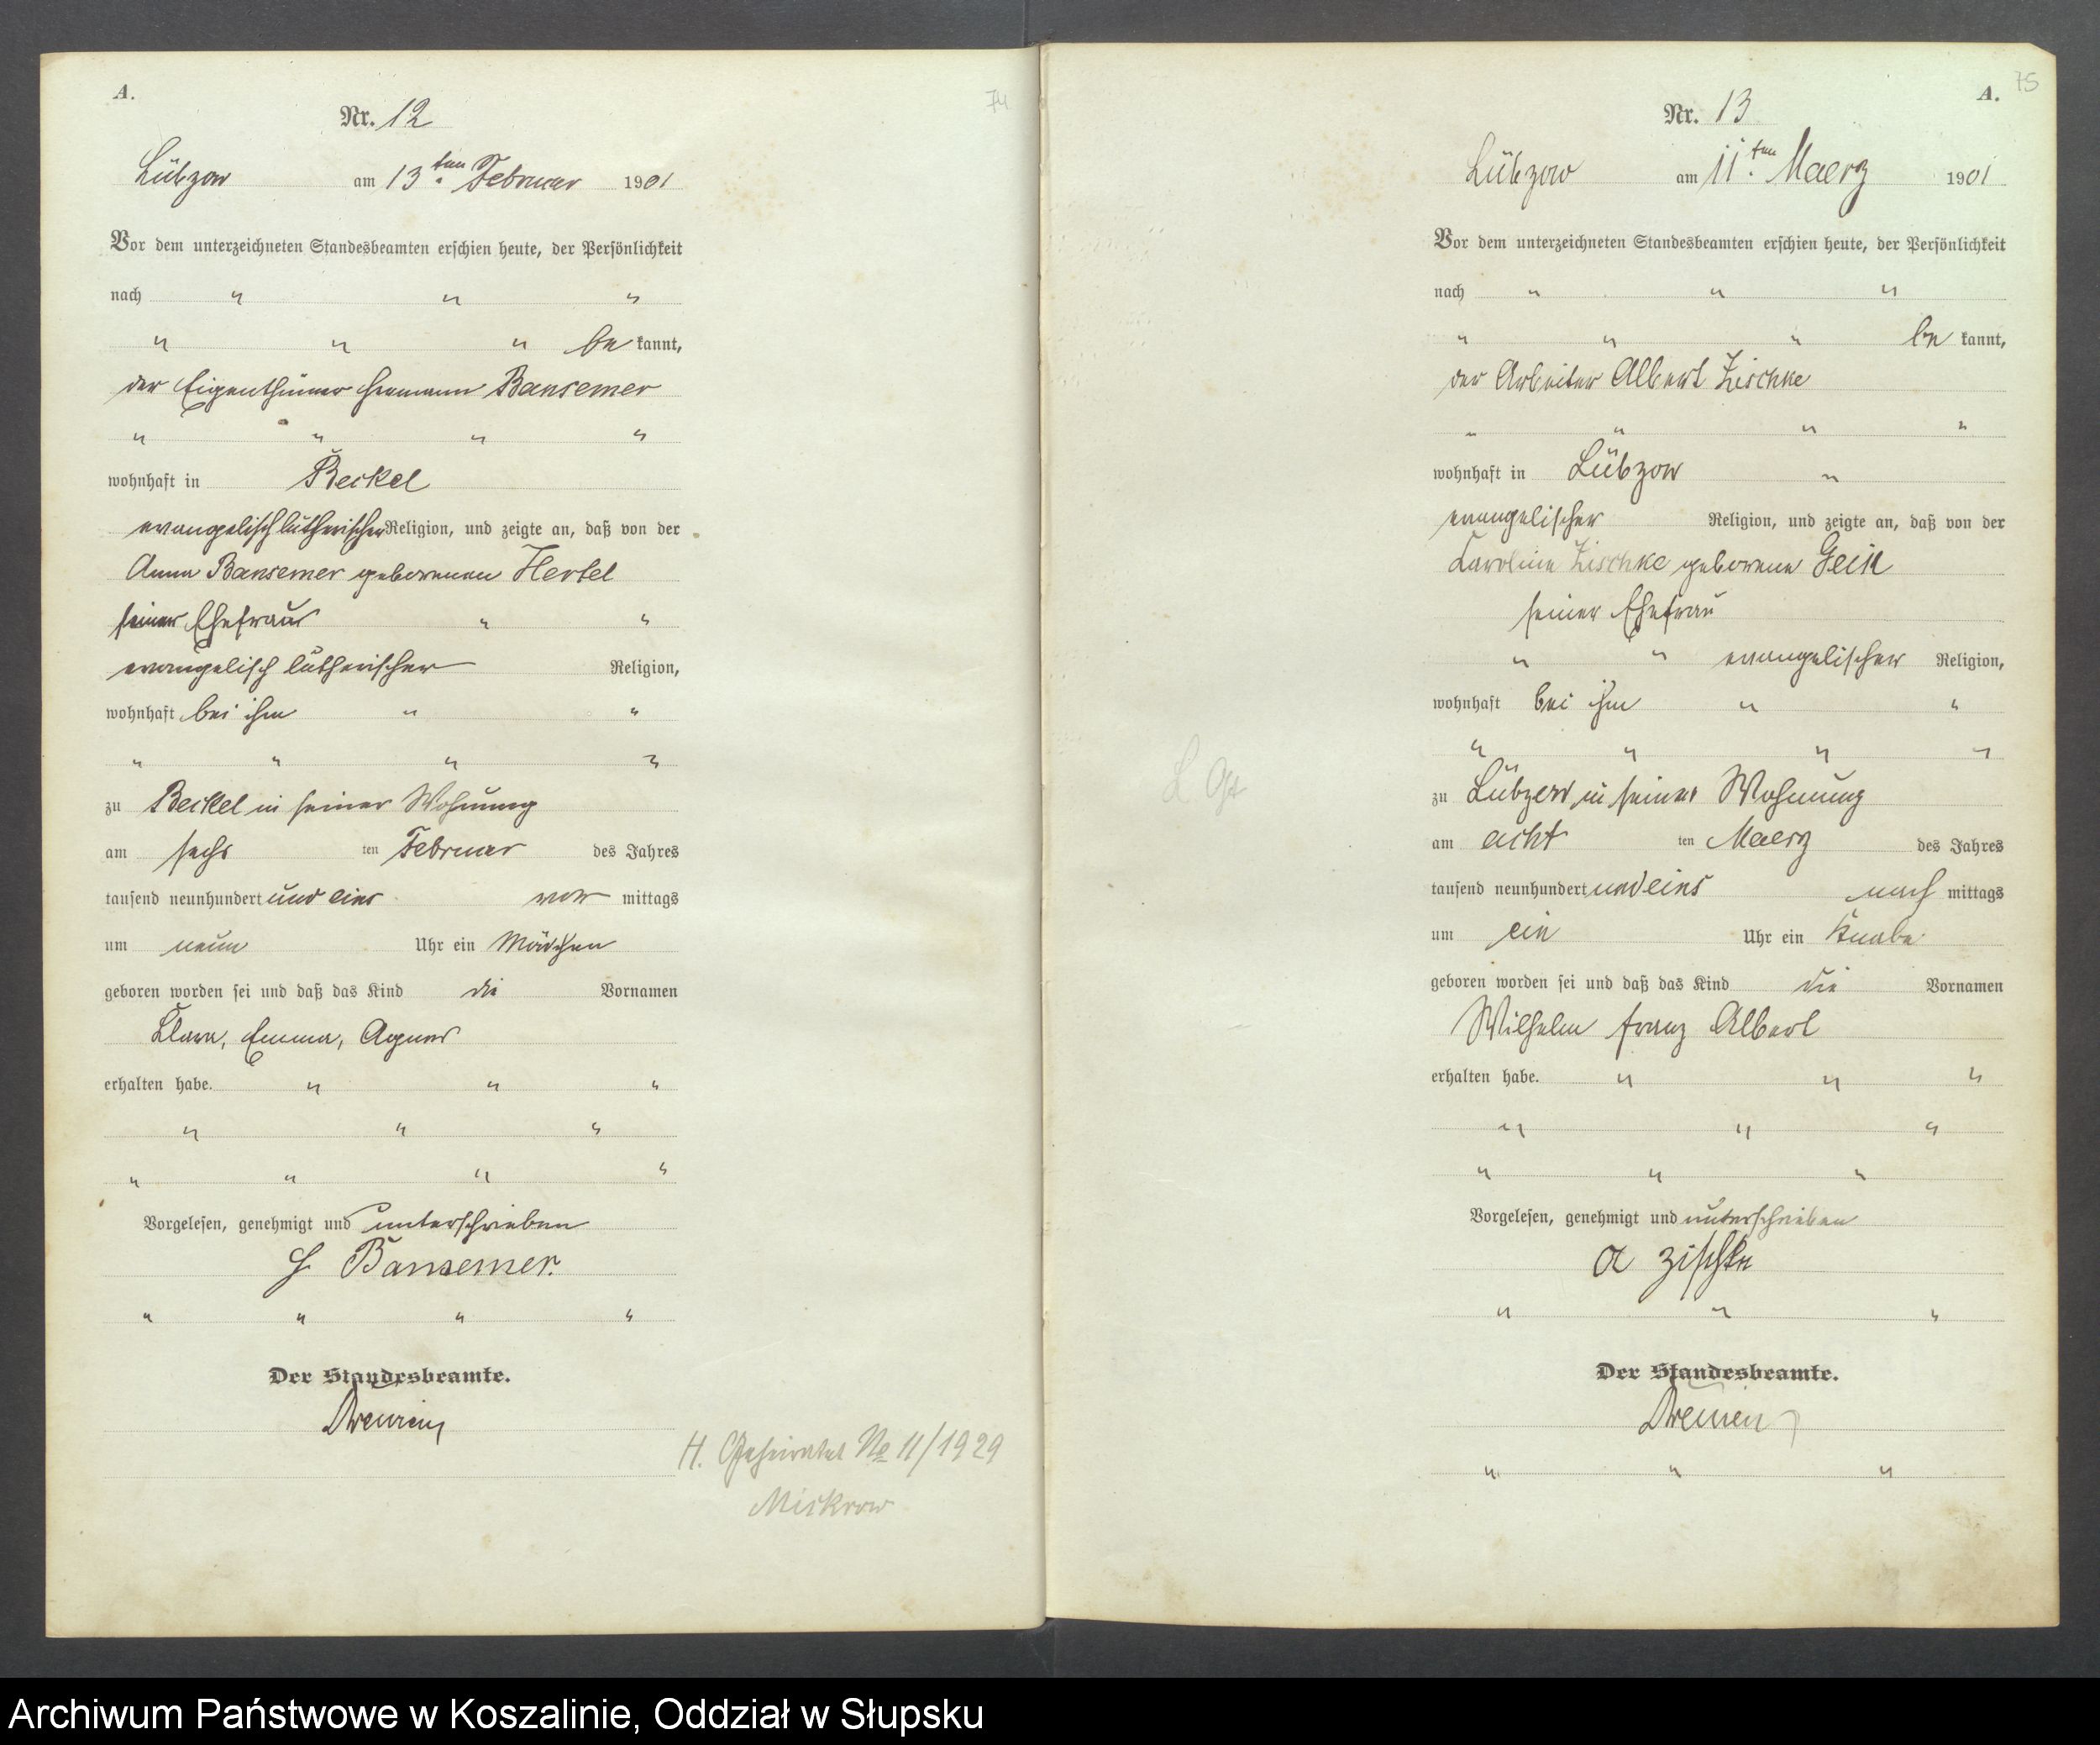 A.
74
Nr. 12
Lübzow am 13.ten Februar 1901
Vor dem unterzeichneten Standesbeamten erschien heute, der Persönlichkeit
nach " " "
" " " be kannt,
der Eigenthümer Hermann Bansemer
" " " "
wohnhaft in Beckel
evangelisch lutherischer Religion, und zeigte an, daß von der
Anna Bansemer geborenen Hertel
seiner Ehefrau " "
evangelisch lutherischer Religion,
wohnhaft bei ihm " "
" " " "
zu Beckel in seiner Wohnung
am sechs ten Februar des Jahres
tausend neunhundert und eins vor mittags
um neun Uhr ein Mädchen
geboren worden sei und daß das Kind die Vornamen
Klara, Emma, Agnes
erhalten habe. " " "
" " "
" " " "
Vorgelesen, genehmigt und unterschrieben
H Bansemer.
" " " "
Der Standesbeamte.
H. Geheiratet No 11/1929
Mickrow
75
A.
Nr. 13
Lübzow am 11.ten Maerz 1901
Vor dem unterzeichneten Standesbeamten erschien heute, der Persönlichkeit
nach " " "
" " " be kannt,
der Arbeiter Albert Zischke
" " " "
wohnhaft in Lübzow "
evangelischer Religion, und zeigte an, daß von der
Karoline Zischke geborene
seiner Ehefrau
" " evangelischer Religion,
wohnhaft bei ihm " "
" " " "
zu Lübzow in seiner Wohnung
am acht ten Maerz des Jahres
tausend neunhundert und eins nach mittags
um ein Uhr ein Knabe
geboren worden sei und daß das Kind die Vornamen
Wilhelm Franz Albert
erhalten habe. " " "
" " "
" " "
Vorgelesen, genehmigt und unterschrieben
A Zischke
" " "
Der Standesbeamte.
" " "
Archiwum Państwowe w Koszalinie, Oddział w Słupsku